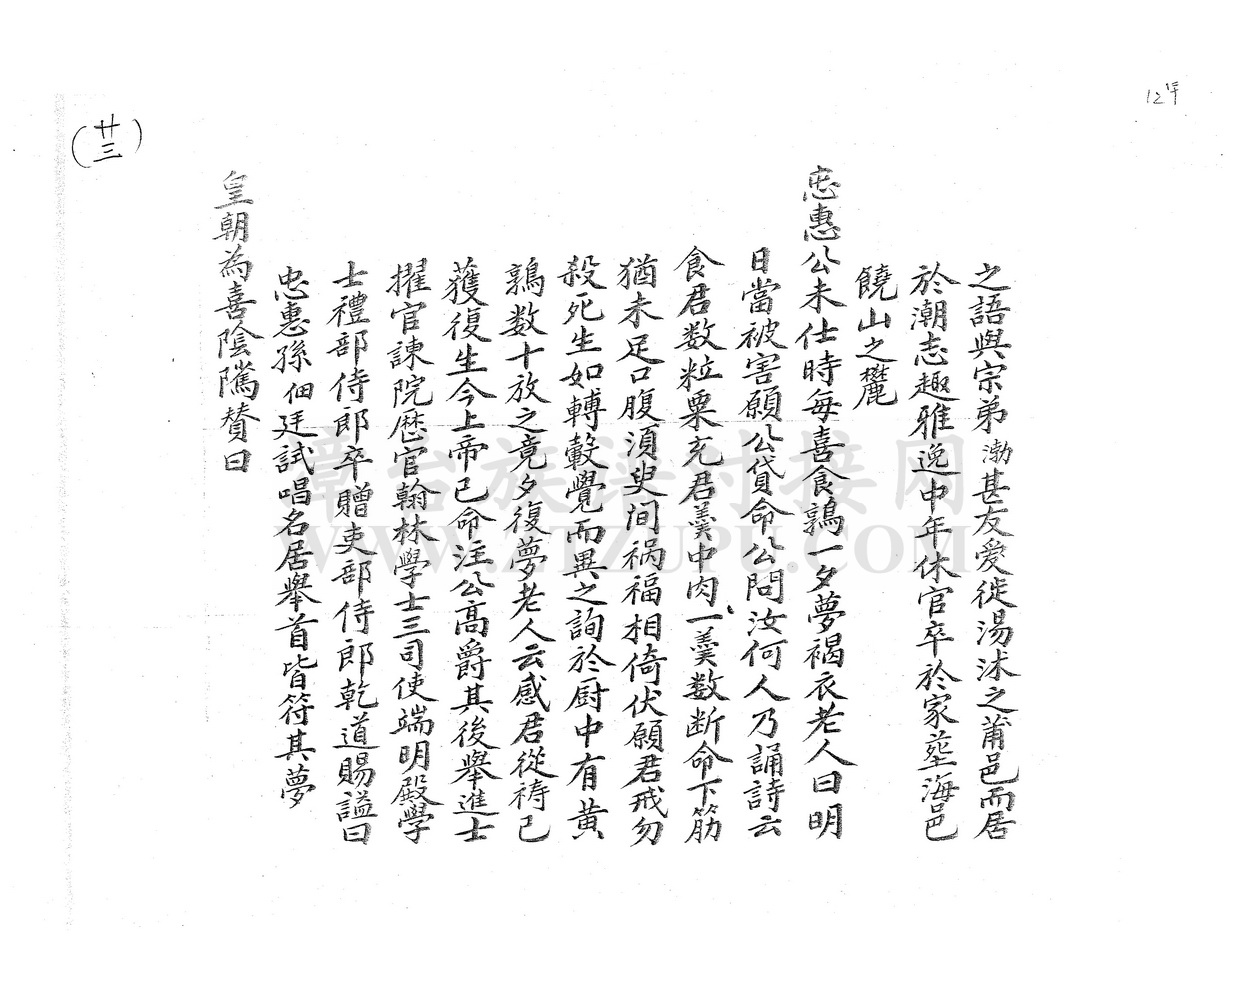 之語與宗弟渤甚友愛徙湯沭之莆邑而居
於潮志趣雅逸中年休官卒於家塟海邑
饒山之麓
忠惠公未仕時每喜食鶉一夕夢褐衣老人曰明
日當被害願公貸命公問汝何人乃誦詩云
食君数粒粟充君羹中肉一羹数断命下筯
猶未足口腹湏臾间祸福相倚伏願君戒勿
殺死生如轉轂覺而異之詢於厨中有黄
鶉数十放之竟夕復夢老人云感君從祷已
獲復生今上帝已命注公高爵其後舉進士
擢官諫院歷官翰林學士三司使端明殿學
士禮部侍郎卒贈吏部侍郎乾道賜謚曰
忠惠孫佃廷試唱名居舉首皆符其夢
皇朝為喜陰隲賛曰
(廿三)
12
章台族谱对接网
WWW.ZTZUPU.COM